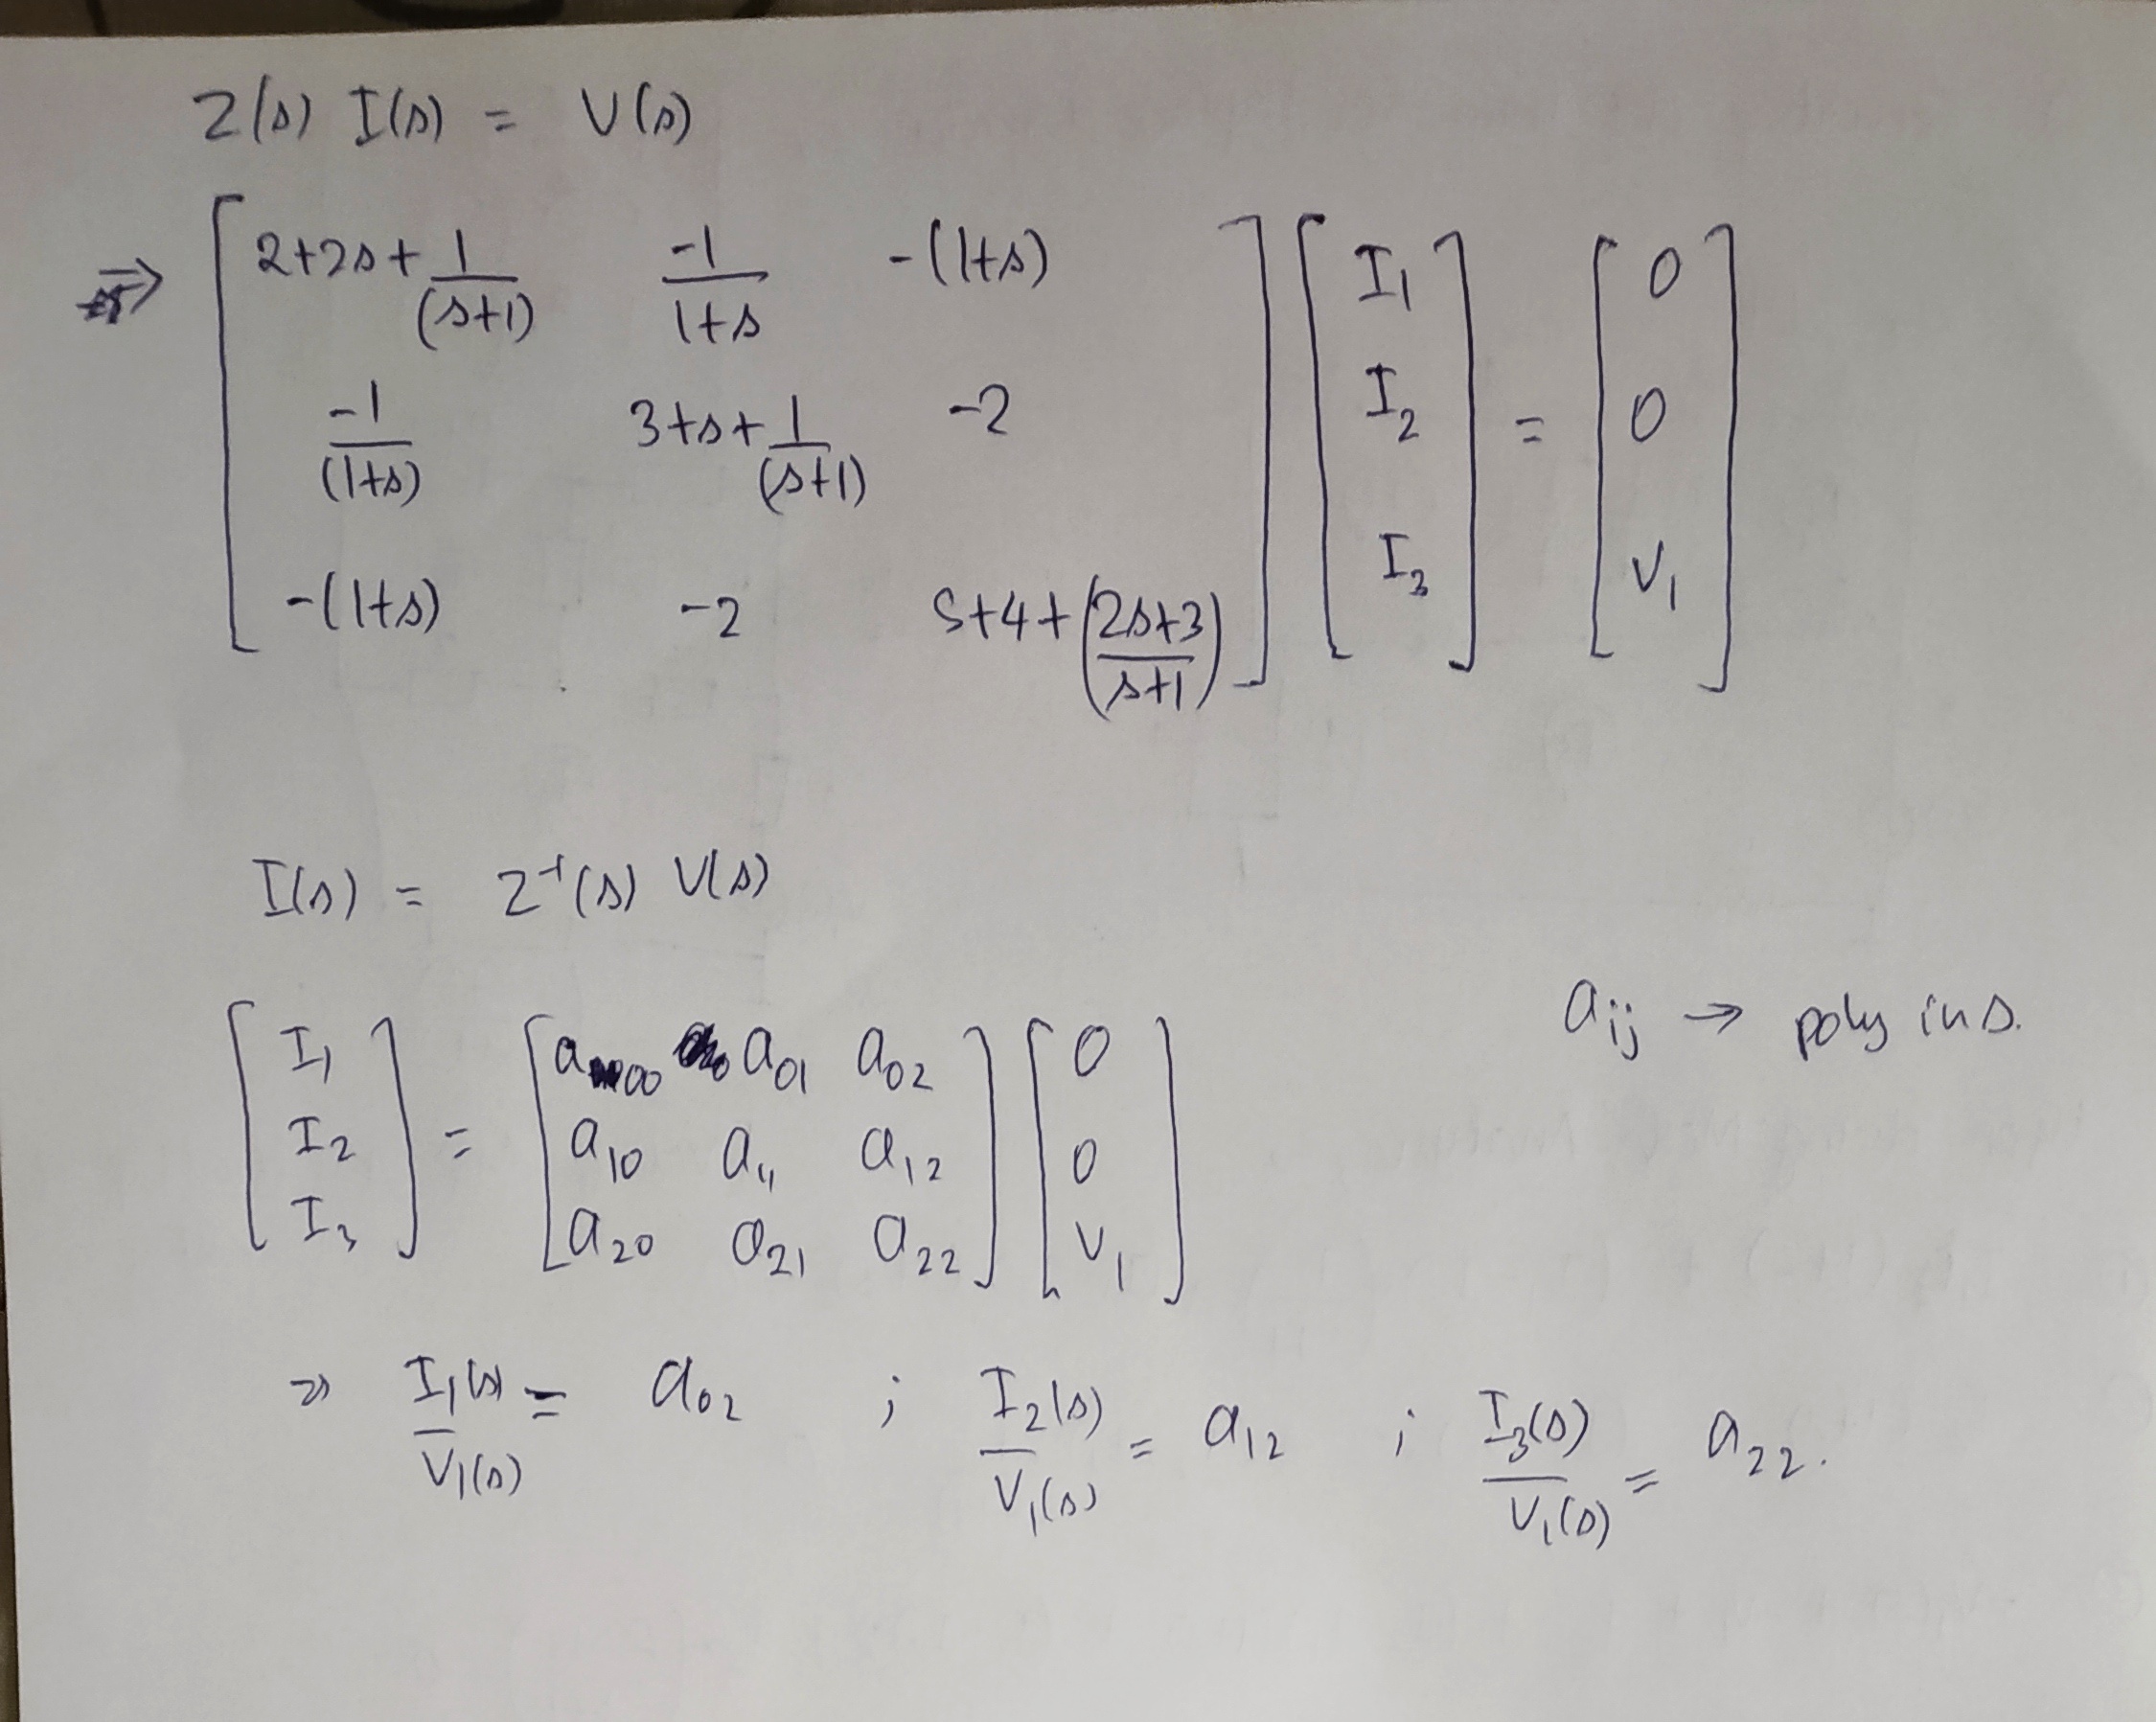 Z(s) I(s) = V(s)
⇒ [ 2+2s+1/(s+1)   -1/1+s   -(1+s) ] [ I1 ] = [ 0 ]
[ -1/(1+s)   3+s+1/(s+1)   -2 ] [ I2 ] [ 0 ]
[ -(1+s)   -2   s+4+(2s+3/s+1) ] [ I3 ] [ V1 ]
I(s) = Z⁻¹(s) V(s)
aij → poly in s.
[ I1 ] = [ a00 a01 a02 ] [ 0 ]
[ I2 ] [ a10 a11 a12 ] [ 0 ]
[ I3 ] [ a20 a21 a22 ] [ V1 ]
⇒ I1(s)/V1(s) = a02 ; I2(s)/V1(s) = a12 ; I3(s)/V1(s) = a22.